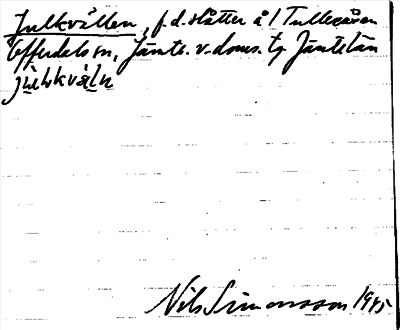 Julkvällen, f.d. slåtter å l Tulleråsen
Offerdals sn, Jämtl. v. doms. tg Jämtl. län
Nils Simonsson 1945